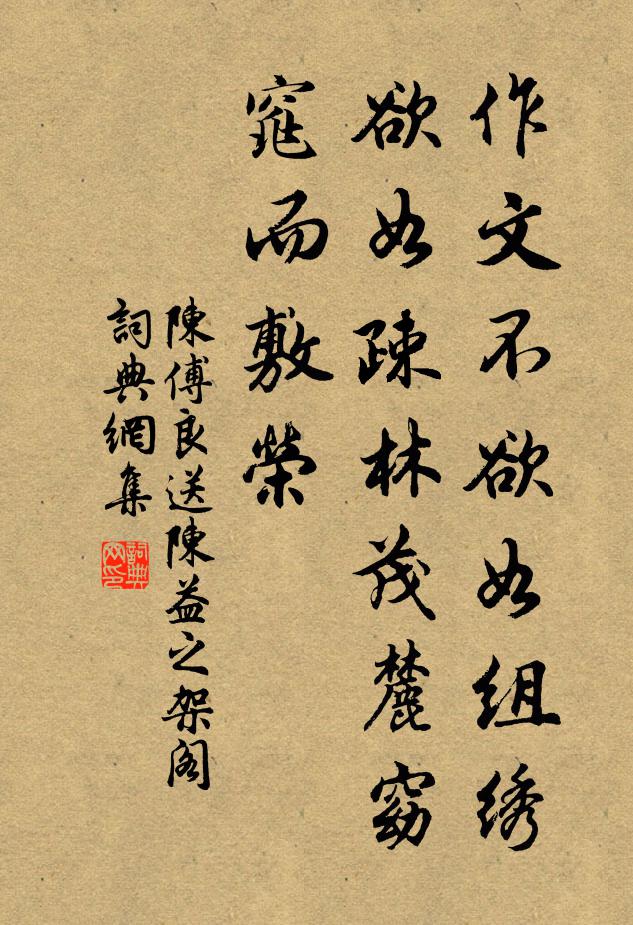 作文不欲如组绣
欲如疎林茂麓窈
窕而敷荣
陳傅良送陳益之架阁
詞典網集
詞典网印